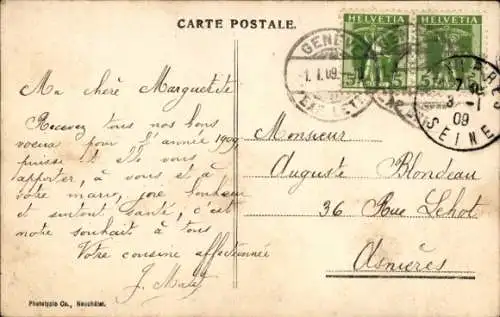 CARTE POSTALE.
HELVETIA HELVETIA
5 5
GENÈVE
1. I. 09.
3 - 1
09
SEINE
Ma chère Marguerite
Recevez tous nos bons
voeux pour l'année 1909
puisse et elle vous
apporter, à vous et à
votre mari, joie bonheur
et surtout santé, c'est
notre souhait à tous
Votre cousine affectionnée
J.
Monsieur
Auguste Blondeau
36 Rue Lehot
Asnières
Phototypie Co., Neuchâtel.